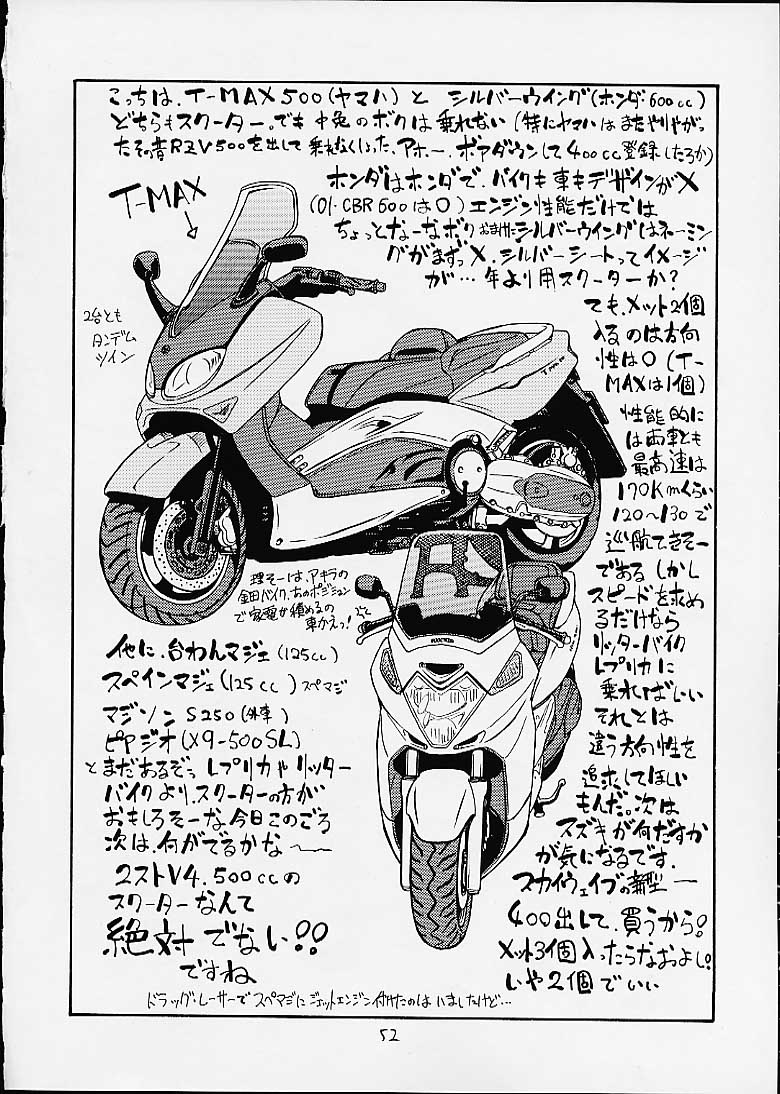 こっちは、T-MAX500(ヤマハ)と シルバーウイング(ホンダ・600cc)
どちらもスクーター。でも中免のボクは乗れない(特にヤマハはまたやりやがっ
たその昔RZV500を出して乗れなくしよった、アホー、ボアダウンして400cc登録したろか)
ホンダはホンダで、バイクも車もデザインが×
(01・CBR600は○)エンジン性能だけでは
ちょっとなーなボク おまけにシルバーウイングはネーミン
グがまずっ×、シルバーシートってイメージ
が…年より用スクーターか?
T-MAX
2台とも
タンデム
ツイン
でも、メット2個
入るのは方向
性は○(T-
MAXは1個)
性能的に
は両車とも
最高速は
170Kmくらい
120〜130で
巡航できそー
である しかし
スピードを求め
るだけなら
リッターバイク
レプリカに
乗ればいい
それとは
違う方向性を
追求してほしい
もんだ。次は
スズキが何だすか
が気になるです.
スカイウェイブの新型ー
400出して、買うから!
メット3個入ったらなおよし!
いや2個でいい
理そーは、アキラの
金田バイク、あのポジション
で家電が積めるの
車かえっ!
他に、台わんマジェ(125cc)
スペインマジェ(125cc)スペマジ
マジソンS250(外車)
ピヤジオ(X9-500SL)
とまだあるぞっ レプリカやリッター
バイクより、スクーターの方が
おもしろそーな今日このごろ
次は、何がでるかな〜
2ストV4.500ccの
スクーターなんて
絶対でない!!
ですね
ドラッグ・レーサーでスペマジにジェットエンジン付けたのはいましたけど…
52